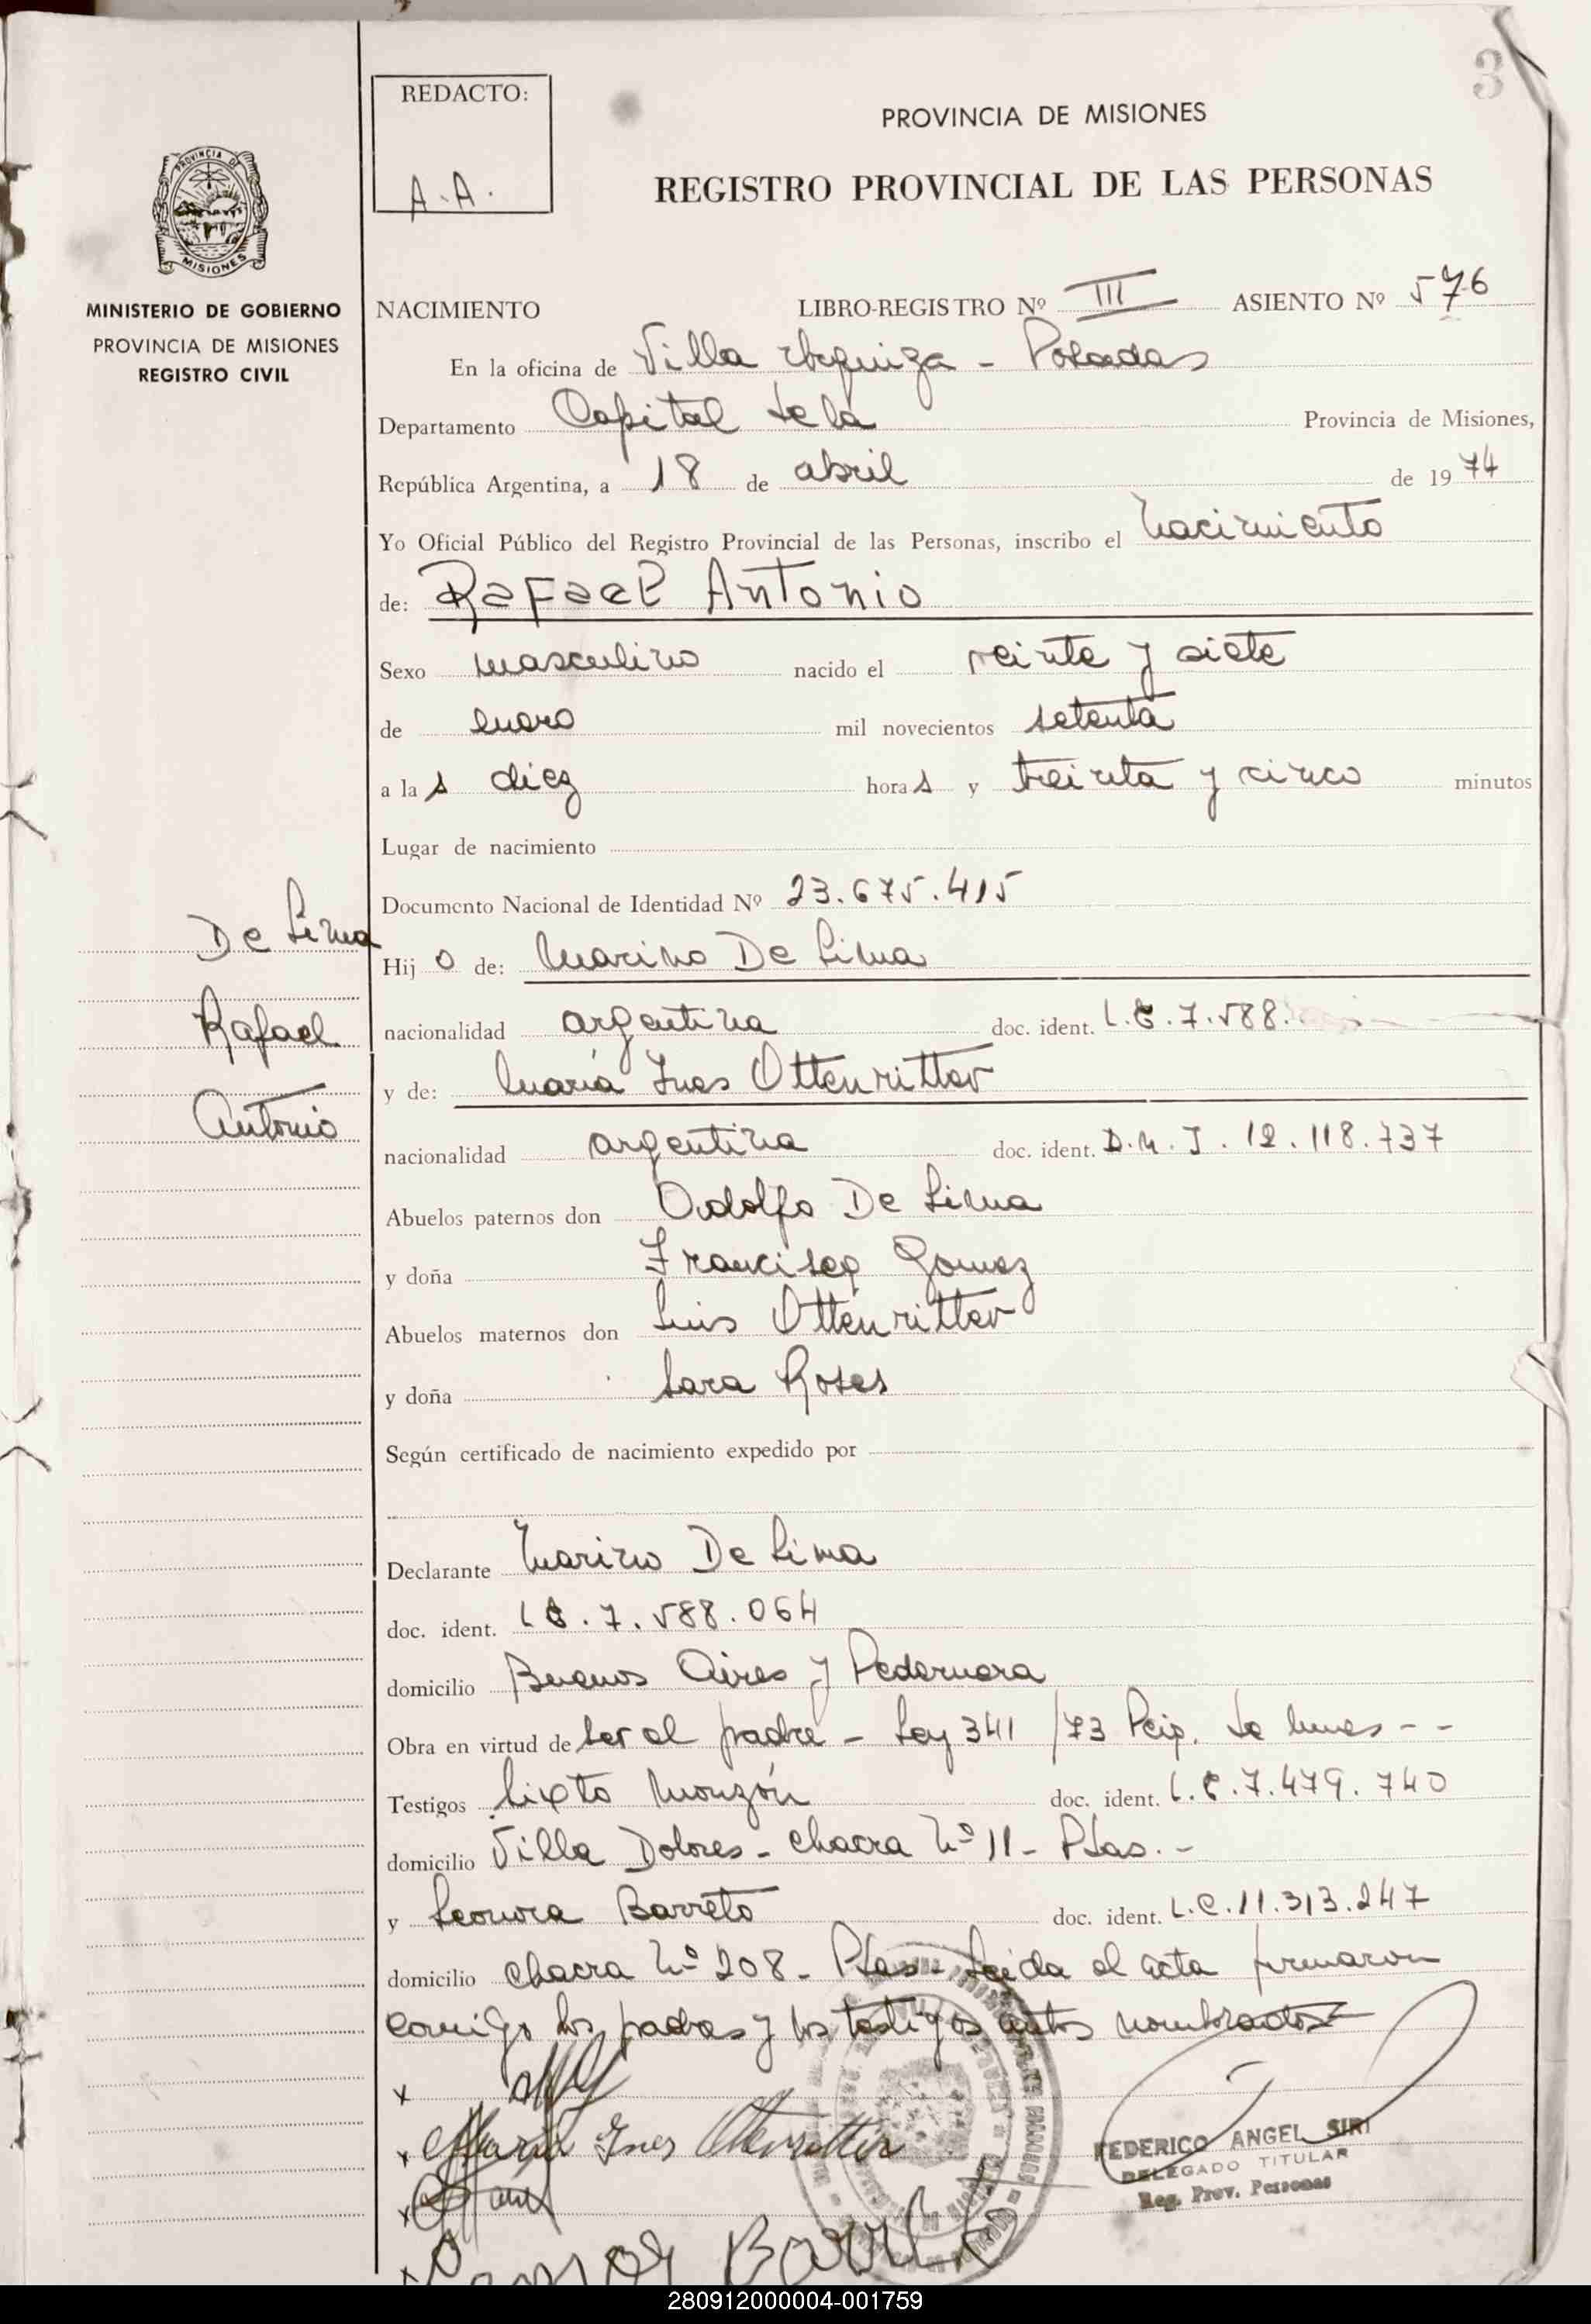 3
REDACTO:
A.A.
PROVINCIA DE MISIONES
REGISTRO PROVINCIAL DE LAS PERSONAS
PROVINCIA DE
MISIONES
MINISTERIO DE GOBIERNO
PROVINCIA DE MISIONES
REGISTRO CIVIL
NACIMIENTO LIBRO-REGISTRO Nº III ASIENTO Nº 576
En la oficina de Villa Urquiza - Posadas
Departamento Capital de la Provincia de Misiones,
República Argentina, a 18 de abril de 1974
Yo Oficial Público del Registro Provincial de las Personas, inscribo el Nacimiento
de: Rafael Antonio
Sexo masculino nacido el veinte y siete
de enero mil novecientos setenta
a las diez horas y treinta y cinco minutos
Lugar de nacimiento
Documento Nacional de Identidad Nº 23.675.415
De Lima
Rafael
Antonio
Hijo de: Marino De Lima
nacionalidad argentina doc. ident. L.E.7.588.
y de: María Ines Ottenritter
nacionalidad argentina doc. ident. D.N.I. 12.118.737
Abuelos paternos don Adolfo De Lima
y doña Francisca Gomez
Abuelos maternos don Luis Ottenritter
y doña Sara Roses
Según certificado de nacimiento expedido por
Declarante Marino De Lima
doc. ident. LE.7.588.064
domicilio Buenos Aires y Pedernera
Obra en virtud de ser el padre - Ley 341/73 - -
Testigos Sixto Monzón doc. ident. L.E.7.479.740
domicilio Villa Dolores - chacra Nº 11 - Pdas. -
y Leonora Barreto doc. ident. L.C.11.313.247
domicilio chacra Nº 208 - Pdas - Leida el acta firmaron
conmigo los padres y los testigos antes nombrados
x
x María Ines Ottenritter
x
x Leonor Barreto
FEDERICO ANGEL SIRI
DELEGADO TITULAR
Reg. Prov. Personas
280912000004-001759